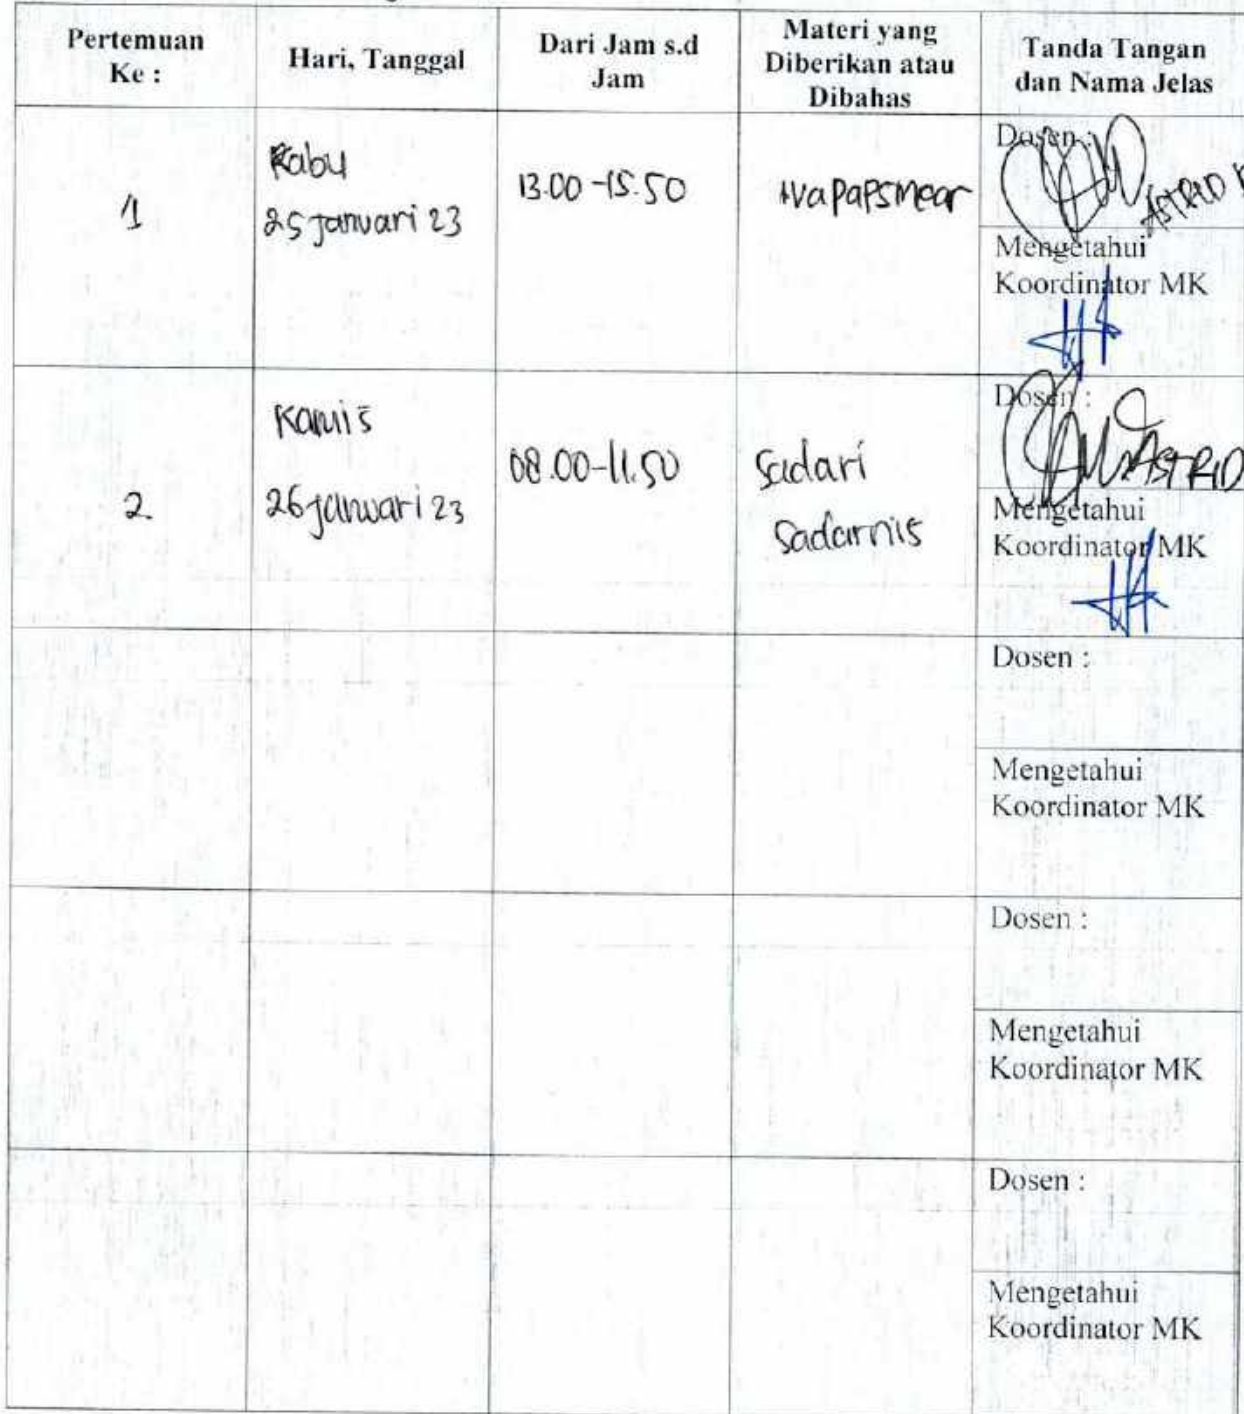 Pertemuan
Ke :
Hari, Tanggal
Dari Jam s.d
Jam
Materi yang
Diberikan atau
Dibahas
Tanda Tangan
dan Nama Jelas
1
Rabu
25 Januari 23
13.00 - 15.50
Iva papsmear
Dosen :
ASTRID
Mengetahui
Koordinator MK
2.
Kamis
26 januari 23
08.00 - 11.50
Sadari
Sadarnis
Dosen :
ASTRID
Mengetahui
Koordinator MK
Dosen :
Mengetahui
Koordinator MK
Dosen :
Mengetahui
Koordinator MK
Dosen :
Mengetahui
Koordinator MK